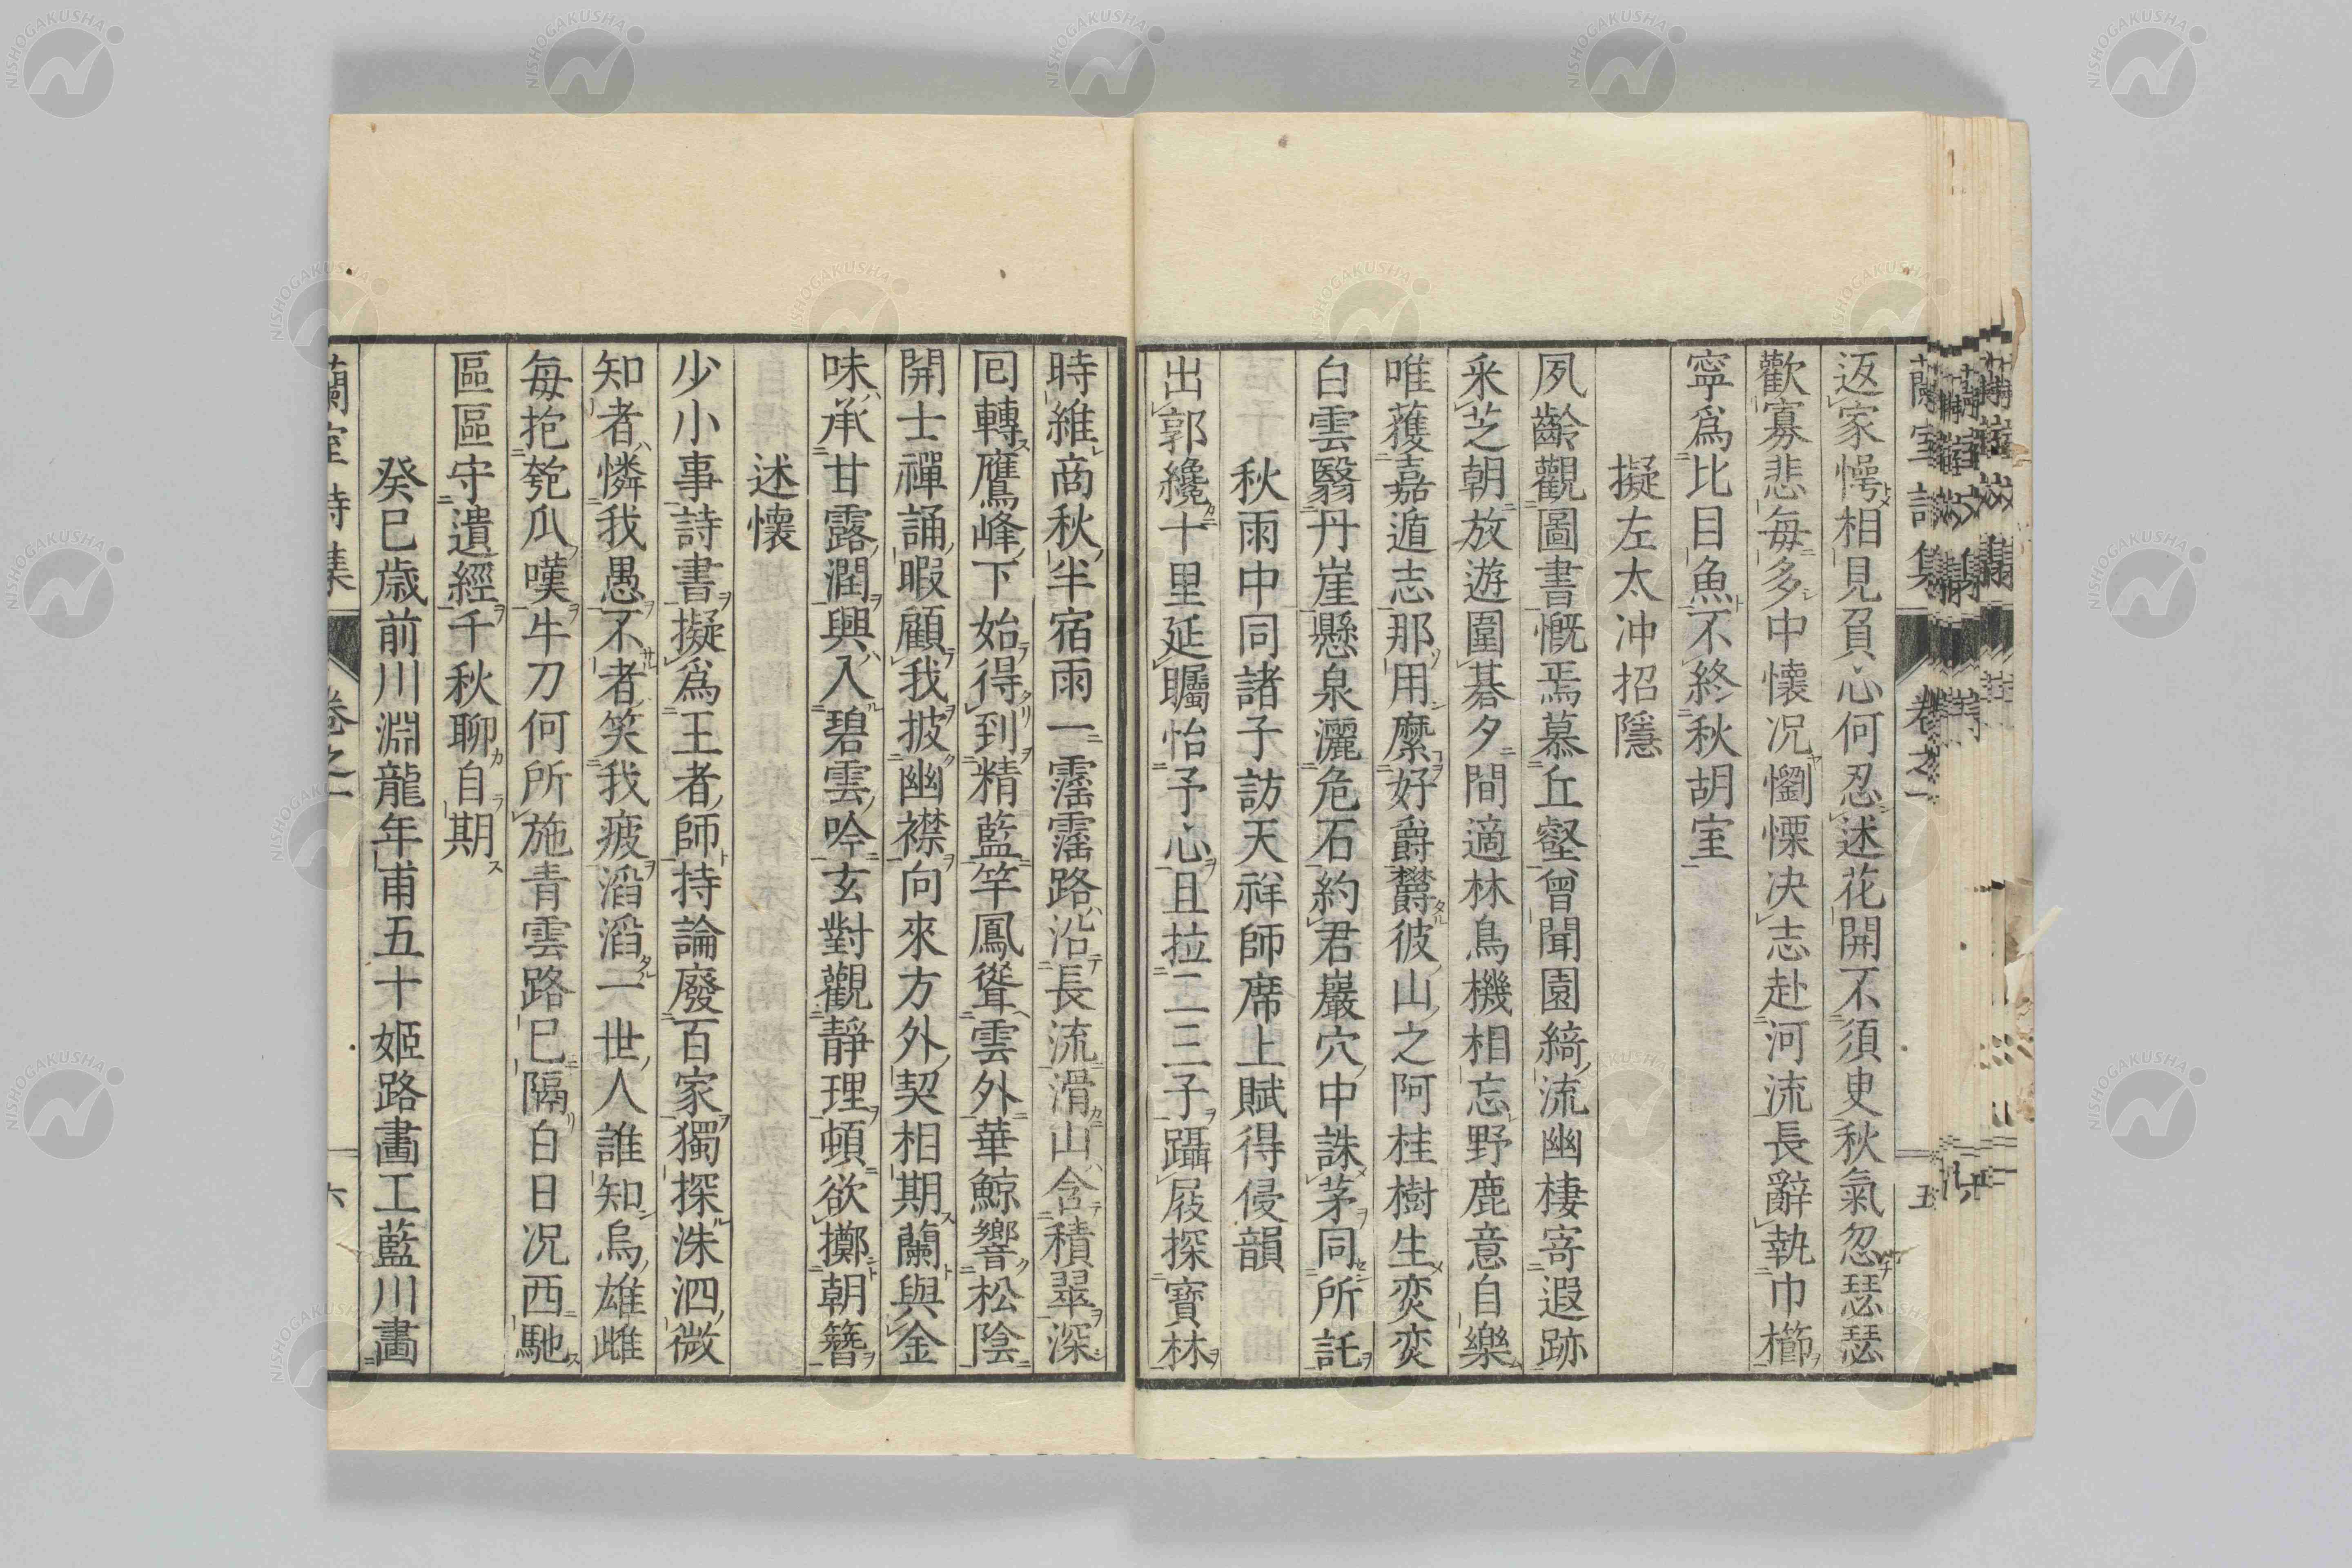 返家愕相見負心何忍述花開不須史秋氣忽瑟瑟
歡寡悲毎多中懷況懰慄決志赴河流長辭執巾櫛
寧爲比目魚不終秋胡室
擬左太冲招隱
夙齡觀圖書慨焉慕丘壑曾聞園綺流幽棲寄遐跡
采芝朝放遊圍棊夕間適林鳥機相忘野鹿意自樂
唯獲嘉遁志那用縻好爵欝彼山之阿桂樹生奕奕
白雲翳丹崖懸泉灑危石約君巖穴中誅茅同所託
秋雨中同諸子訪天祥師席上賦得侵韻
出郭纔十里延矚怡予心且拉二三子躡屐探寶林
時維商秋半宿雨一霪霪路沿長流滑山含積翠深
囘轉鷹峰下始得到精藍竿鳳聳雲外華鯨響松陰
開士禪誦暇顧我披幽襟向來方外契相期蘭與金
味承甘露潤興入碧雲吟玄對觀靜理頓欲擲朝簪
述懷
少小事詩書擬爲王者師持論廢百家獨探洙泗微
知者憐我愚不者笑我疲滔滔一世人誰知烏雄雌
毎抱匏瓜嘆牛刀何所施青雲路已隔白日況西馳
區區守遺經千秋聊自期
癸巳歳前川淵龍年甫五十姬路畵工藍川畵
蘭室詩集
卷之一
五
蘭室詩集
卷之一
六
NISHOGAKUSHA